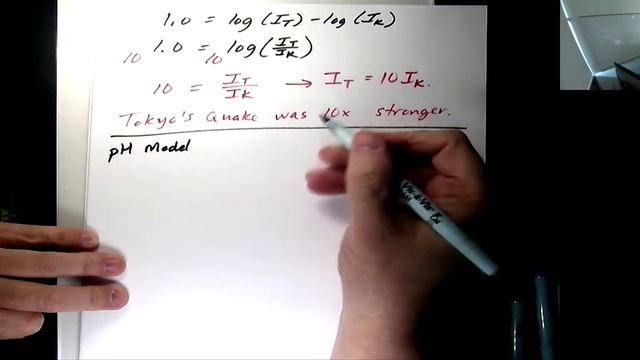 1.0 = log(I_T) - log(I_K)
10 1.0 = 10 log(I_T/I_K)
10 = I_T/I_K → I_T = 10 I_K.
Tokyo's Quake was 10x stronger.
pH Model